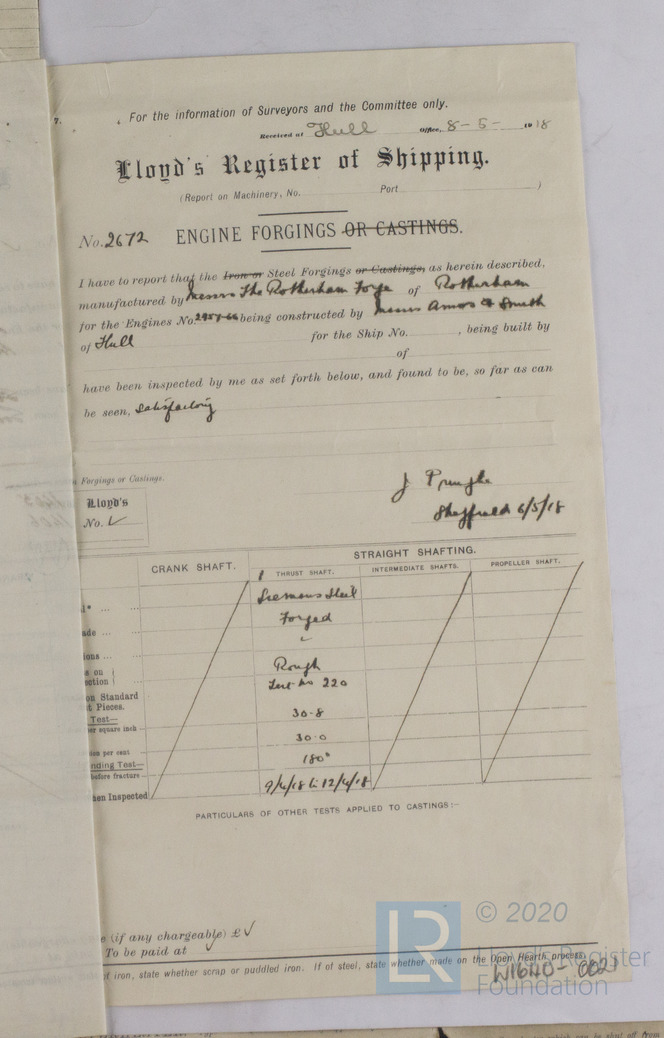 7.
For the information of Surveyors and the Committee only.
Received at Hull Office, 8-5- 1918
Lloyd's Register of Shipping.
(Report on Machinery, No. Port )
No. 2672 ENGINE FORGINGS OR CASTINGS.
I have to report that the Iron or Steel Forgings or Castings, as herein described,
manufactured by Messrs The Rotherham Forge of Rotherham
for the Engines No. being constructed by Messrs Amos & Smith
of Hull for the Ship No. , being built by
of
have been inspected by me as set forth below, and found to be, so far as can
be seen, satisfactory
Forgings or Castings.
J Pringle
Lloyd's
No. ✓
Sheffield 6/5/18
STRAIGHT SHAFTING.
CRANK SHAFT. 1 THRUST SHAFT. INTERMEDIATE SHAFTS. PROPELLER SHAFT.
Siemens Steel
ade ... Forged
ions ... ✓
s on
ction Rough
on Standard Test No 220
t Pieces.
Test—
er square inch 30.8
30.0
ion per cent
nding Test— 180°
before fracture
hen Inspected 9/4/18 to 12/4/18
PARTICULARS OF OTHER TESTS APPLIED TO CASTINGS:—
e (if any chargeable) £ ✓
To be paid at ✓
of iron, state whether scrap or puddled iron. If of steel, state whether made on the Open Hearth process,
W1640-0021
LR
© 2020
Lloyd's Register
Foundation